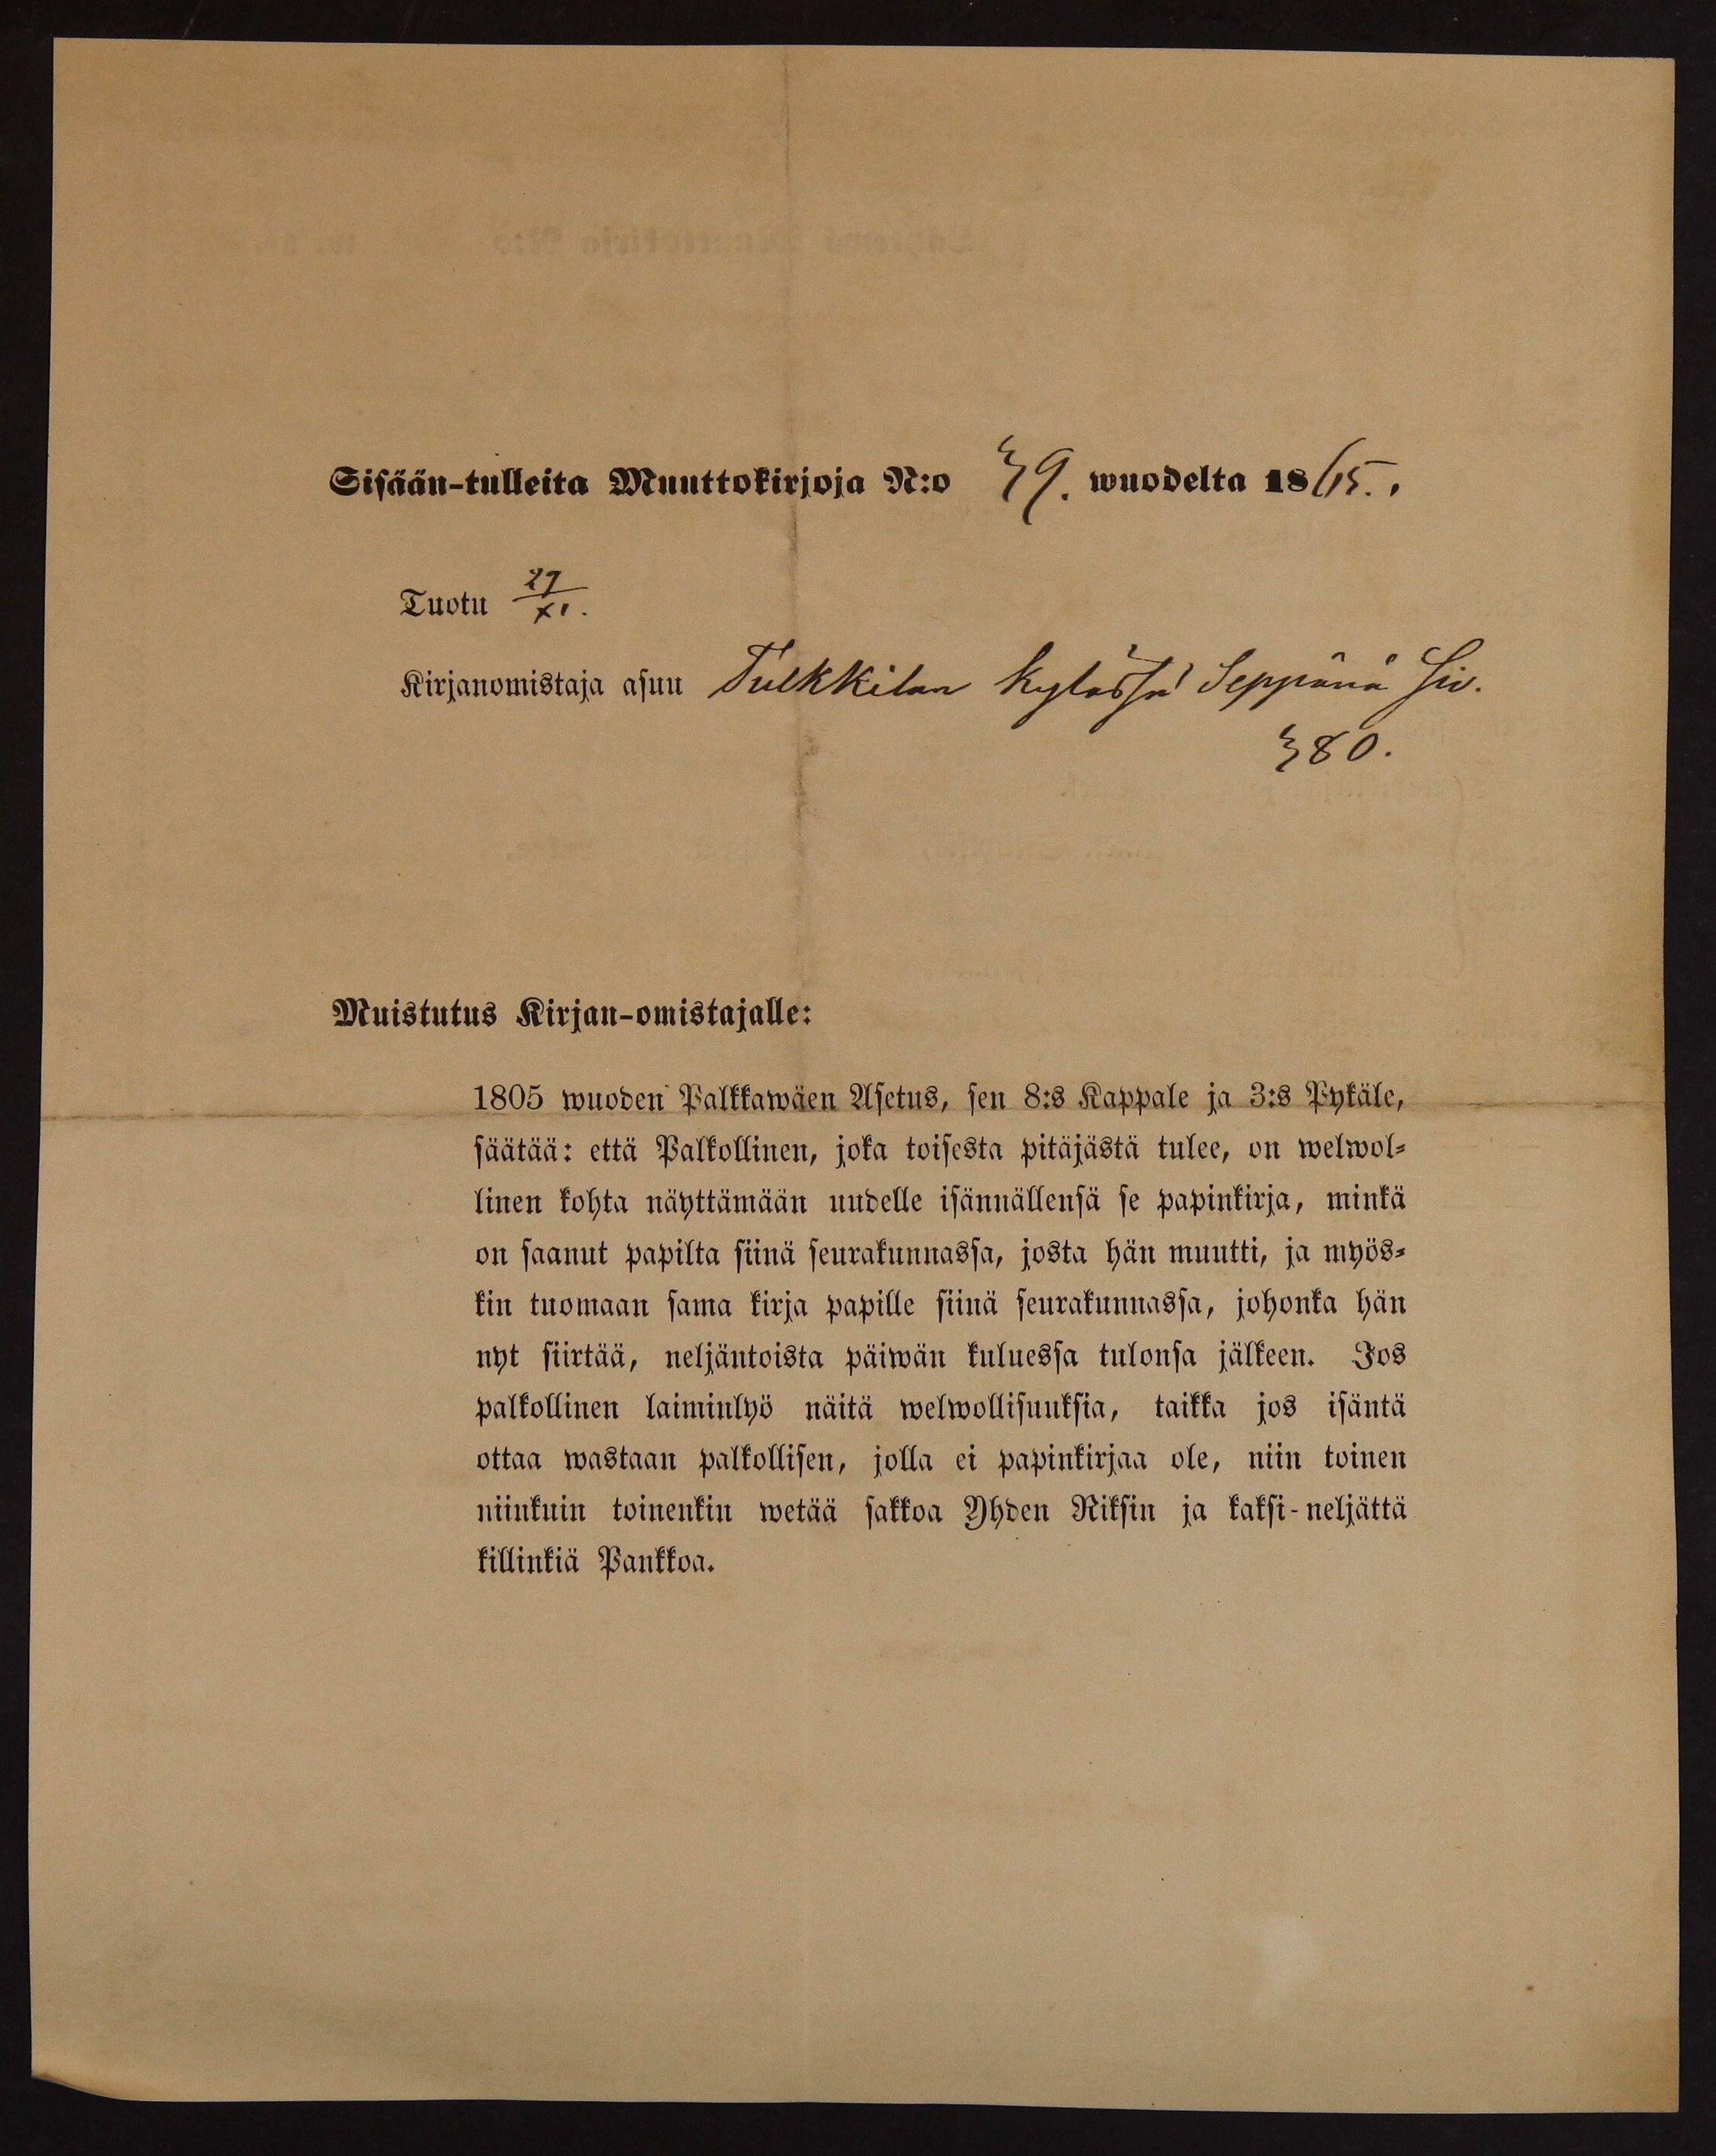 Sisään-tulleita Muuttokirjoja N:o 39. wuodelta 1865.
Tuotu 27/XI.
Kirjanomistaja asuu Tulkkilan kylässä Seppänä Siv.
380.
Muistutus Kirjan-omistajalle:
1805 wuoden Palkkawäen Asetus, sen 8:s Kappale ja 3:s Pykäle,
säätää: että Palkollinen, joka toisesta pitäjästä tulee, on welwol-
linen kohta näyttämään uudelle isännällensä se papinkirja, minkä
on saanut papilta siinä seurakunnassa, josta hän muutti, ja myös-
kin tuomaan sama kirja papille siinä seurakunnassa, johonka hän
nyt siirtää, neljäntoista päiwän kuluessa tulonsa jälkeen. Jos
palkollinen laiminlyö näitä welwollisuuksia, taikka jos isäntä
ottaa wastaan palkollisen, jolla ei papinkirjaa ole, niin toinen
niinkuin toinenkin wetää sakkoa Yhden Riksin ja kaksi-neljättä
killinkiä Pankkoa.